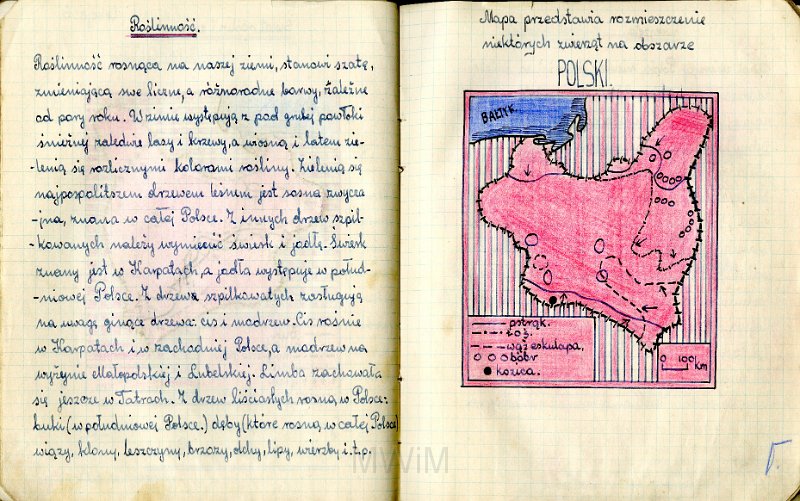 Roślinność.
Roślinność rosnąca na naszej ziemi, stanowi szatę,
zmieniającą swe liczne, a różnorodne barwy, zależne
od pory roku. W zimie występują z pod grubej powłoki
śnieżnej zaledwie lasy i krzewy, a wiosną i latem zie-
lenią się rozlicznymi kolorami rośliny. Zielenią się
najpospolitszem drzewem leśnem jest sosna zwycza
-jna, znana w całej Polsce. Z innych drzew szpil-
-kowanych należy wymienić świerk i jodłę. Świerk
znany jest w Karpatach, a jodła występuje w połud-
-niowej Polsce. Z drzew szpilkowatych zasługują
na uwagę ginące drzewa: cis i modrzew. Cis rośnie
w Karpatach i w zachodniej Polsce, a modrzew na
wyżynie Małopolskiej i Lubelskiej. Limba zachowała
się jeszcze w Tatrach. Z drzew liściastych rosną w Polsce:
buki (w południowej Polsce.) dęby (które rosną w całej Polsce)
wiązy, klony, leszczyny, brzozy, olchy, lipy, wierzby i.t.p.
Mapa przedstawia rozmieszczenie
niektórych zwierząt na obszarze
POLSKI.
BAŁTYK
pstrąk.
łoś.
wąż eskulapa.
bóbr
kozica.
0 100 km
MWiM